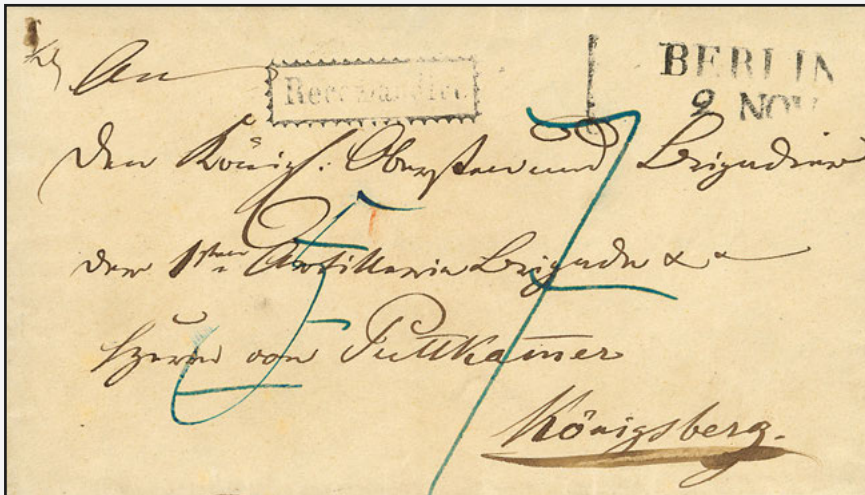 An
Recomandirt.
BERLIN
9 NOV
den Königl: Obersten und Brigadier
der 1sten Artillerie Brigade
Herrn von Puttkamer
Königsberg.